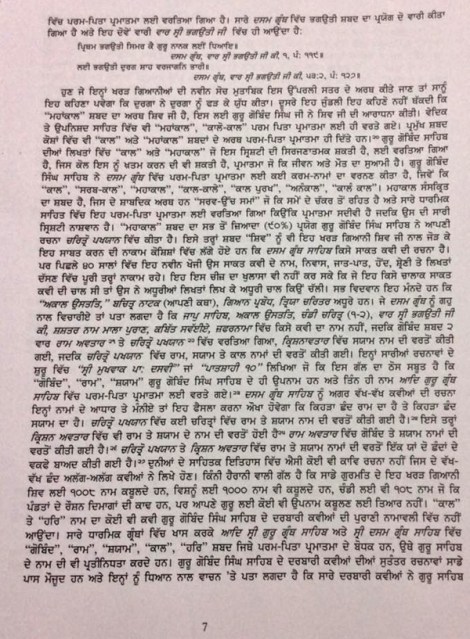 ਵਿੱਚ ਪਰਮ-ਪਿਤਾ ਪ੍ਰਮਾਤਮਾ ਲਈ ਵਰਤਿਆ ਗਿਆ ਹੈ। ਸਾਰੇ ਦਸਮ ਗ੍ਰੰਥ ਵਿੱਚ ਭਗਉਤੀ ਸ਼ਬਦ ਦਾ ਪ੍ਰਯੋਗ ਦੋ ਵਾਰੀ ਕੀਤਾ
ਗਿਆ ਹੈ ਅਤੇ ਇਹ ਦੋਵੇਂ ਵਾਰੀ ਵਾਰ ਸ੍ਰੀ ਭਗਉਤੀ ਜੀ ਵਿੱਚ ਹੀ ਆਉਂਦਾ ਹੈ:
ਪ੍ਰਿਥਮ ਭਗਉਤੀ ਸਿਮਰ ਕੈ ਗੁਰੂ ਨਾਨਕ ਲਈ ਧਿਆਇ॥
ਦਸਮ ਗ੍ਰੰਥ, ਵਾਰ ਸ੍ਰੀ ਭਗਉਤੀ ਜੀ ਕੀ, ੧, ਪੰ: ੧੧੯॥
ਲਈ ਭਗਉਤੀ ਦੁਰਗ ਸ਼ਾਹ ਵਰਜਾਗਨ ਭਾਰੀ॥
ਦਸਮ ਗ੍ਰੰਥ, ਵਾਰ ਸ੍ਰੀ ਭਗਉਤੀ ਜੀ ਕੀ, ੫੩:੨, ਪੰ: ੧੨੭॥
ਹੁਣ ਜੇ ਇਨ੍ਹਾਂ ਖੜਤ ਗਿਆਨੀਆਂ ਦੀ ਨਵੀਨ ਸੋਚ ਮੁਤਾਬਿਕ ਇਸ ਉੱਪਰਲੀ ਸਤਰ ਦੇ ਅਰਥ ਕੀਤੇ ਜਾਣ ਤਾਂ ਸਾਨੂੰ
ਇਹ ਕਹਿਣਾ ਪਵੇਗਾ ਕਿ ਦੁਰਗਾ ਨੇ ਦੁਰਗਾ ਨੂੰ ਫੜ ਕੇ ਯੁੱਧ ਕੀਤਾ। ਦੂਸਰੇ ਇਹ ਜੁੰਡਲੀ ਇਹ ਕਹਿਣੋਂ ਨਹੀਂ ਥੱਕਦੀ ਕਿ
"ਮਹਾਂਕਾਲ" ਸ਼ਬਦ ਦਾ ਅਰਥ ਸ਼ਿਵ ਜੀ ਹੈ, ਇਸ ਲਈ ਗੁਰੂ ਗੋਬਿੰਦ ਸਿੰਘ ਜੀ ਨੇ ਸ਼ਿਵ ਜੀ ਦੀ ਆਰਾਧਨਾ ਕੀਤੀ। ਵੇਦਿਕ
ਤੇ ਉਪਨਿਸ਼ਦ ਸਾਹਿਤ ਵਿੱਚ ਵੀ "ਮਹਾਂਕਾਲ", "ਕਾਲੋ-ਕਾਲ" ਪਰਮ ਪਿਤਾ ਪ੍ਰਮਾਤਮਾ ਲਈ ਹੀ ਵਰਤੇ ਗਏ। ਪ੍ਰਮੁੱਖ ਸ਼ਬਦ
ਕੋਸ਼ਾਂ ਵਿੱਚ ਵੀ "ਕਾਲ" ਅਤੇ "ਮਹਾਂਕਾਲ" ਸ਼ਬਦਾਂ ਦੇ ਅਰਥ ਪਰਮ-ਪਿਤਾ ਪ੍ਰਮਾਤਮਾ ਹੀ ਦਿੱਤੇ ਹਨ। ਗੁਰੂ ਗੋਬਿੰਦ ਸਾਹਿਬ
ਦੀਆਂ ਲਿਖਤਾਂ ਵਿੱਚ "ਕਾਲ" ਅਤੇ "ਮਹਾਂਕਾਲ" ਜੋ ਇਸ ਸ੍ਰਿਸ਼ਟੀ ਦੀ ਸਿਰਜਣਾਤਮਕ ਸ਼ਕਤੀ ਹੈ, ਲਈ ਵਰਤਿਆ ਗਿਆ
ਹੈ, ਜਿਸ ਕੋਲ ਇਸ ਨੂੰ ਖਤਮ ਕਰਨ ਦੀ ਵੀ ਸ਼ਕਤੀ ਹੈ, ਪ੍ਰਮਾਤਮਾ ਜੋ ਕਿ ਜੀਵਨ ਅਤੇ ਮੌਤ ਦਾ ਸੁਆਮੀ ਹੈ। ਗੁਰੂ ਗੋਬਿੰਦ
ਸਿੰਘ ਸਾਹਿਬ ਨੇ ਦਸਮ ਗ੍ਰੰਥ ਵਿੱਚ ਪਰਮ-ਪਿਤਾ ਪ੍ਰਮਾਤਮਾ ਲਈ ਕਈ ਕਰਮ-ਨਾਮਾਂ ਦਾ ਵਰਣਨ ਕੀਤਾ ਹੈ, ਜਿਵੇਂ ਕਿ
"ਕਾਲ", "ਸਰਬ-ਕਾਲ", "ਮਹਾਂਕਾਲ", "ਕਾਲ-ਕਾਲੈ", "ਕਾਲ ਪੁਰਖ", "ਅਨੰਕਾਲ", "ਕਾਲੰ ਕਾਲ"। ਮਹਾਂਕਾਲ ਸੰਸਕ੍ਰਿਤ
ਦਾ ਸ਼ਬਦ ਹੈ, ਜਿਸ ਦੇ ਸ਼ਾਬਦਿਕ ਅਰਥ ਹਨ "ਸਰਵ-ਉੱਚ ਸਮਾਂ" ਜੋ ਕਿ ਸਮੇਂ ਦੇ ਚੱਕਰ ਤੋਂ ਰਹਿਤ ਹੈ ਅਤੇ ਸਾਰੇ ਧਾਰਮਿਕ
ਸਾਹਿਤ ਵਿੱਚ ਇਹ ਪਰਮ-ਪਿਤਾ ਪ੍ਰਮਾਤਮਾ ਲਈ ਵਰਤਿਆ ਗਿਆ ਕਿਉਂਕਿ ਪ੍ਰਮਾਤਮਾ ਸਦੀਵੀ ਹੈ ਜਦਕਿ ਉਸ ਦੀ ਸਾਰੀ
ਸ੍ਰਿਸ਼ਟੀ ਨਾਸ਼ਵਾਨ ਹੈ। "ਮਹਾਂਕਾਲ" ਸ਼ਬਦ ਦਾ ਸਭ ਤੋਂ ਜ਼ਿਆਦਾ (੯੦%) ਪ੍ਰਯੋਗ ਗੁਰੂ ਗੋਬਿੰਦ ਸਿੰਘ ਸਾਹਿਬ ਨੇ ਆਪਣੀ
ਰਚਨਾ ਚਰਿਤ੍ਰੋ ਪਖਯਾਨ ਵਿੱਚ ਕੀਤਾ ਹੈ। ਇਸੇ ਤਰ੍ਹਾਂ ਸ਼ਬਦ "ਸ਼ਿਵ" ਨੂੰ ਵੀ ਇਹ ਖੜਤ ਗਿਆਨੀ ਸ਼ਿਵ ਜੀ ਨਾਲ ਜੋੜ ਕੇ
ਇਹ ਸਾਬਤ ਕਰਨ ਦੀ ਨਾਕਾਮ ਕੋਸ਼ਿਸ਼ਾਂ ਵਿੱਚ ਲੱਗੇ ਹੋਏ ਹਨ ਕਿ ਦਸਮ ਗ੍ਰੰਥ ਸਾਹਿਬ ਕਿਸੇ ਸਾਕਤ ਕਵੀ ਦੀ ਰਚਨਾ ਹੈ।
ਪਰ ਪਿਛਲੇ ੪੦ ਸਾਲਾਂ ਵਿੱਚ ਇਹ ਨਵੀਨ ਖੋਜੀ ਉਸ ਸਾਕਤ ਕਵੀ ਦੇ ਨਾਮ, ਨਿਵਾਸ, ਜਾਤ-ਪਾਤ, ਹੋਂਦ, ਸ੍ਰੇਣੀ ਤੇ ਲਿਖਤਾਂ
ਦੱਸਣ ਵਿੱਚ ਪੂਰੀ ਤਰ੍ਹਾਂ ਨਾਕਾਮ ਰਹੇ ਹਨ। ਇਹ ਇਸ ਚੀਜ਼ ਦਾ ਖੁਲਾਸਾ ਵੀ ਨਹੀਂ ਕਰ ਸਕੇ ਕਿ ਜੇ ਇਹ ਕਿਸੇ ਚਾਲਾਕ ਸਾਕਤ
ਕਵੀ ਦੀ ਚਾਲ ਸੀ ਤਾਂ ਉਸ ਨੇ ਅਧੂਰੀਆਂ ਲਿਖਤਾਂ ਲਿਖ ਕੇ ਅਧੂਰੀ ਚਾਲ ਕਿਉਂ ਚੱਲੀ। ਸਭ ਵਿਦਵਾਨ ਇਹ ਮੰਨਦੇ ਹਨ ਕਿ
"ਅਕਾਲ ਉਸਤਤਿ," ਬਚਿਤ੍ਰ ਨਾਟਕ (ਆਪਣੀ ਕਥਾ), ਗਿਆਨ ਪ੍ਰਬੋਧ, ਤ੍ਰਿਯਾ ਚਰਿਤਰ ਅਧੂਰੇ ਹਨ। ਜੇ ਦਸਮ ਗ੍ਰੰਥ ਨੂੰ ਗਹੁ
ਨਾਲ ਵਿਚਾਰੀਏ ਤਾਂ ਪਤਾ ਲਗਦਾ ਹੈ ਕਿ ਜਾਪੁ ਸਾਹਿਬ, ਅਕਾਲ ਉਸਤਤ, ਚੰਡੀ ਚਰਿਤ੍ਰ (੧-੨), ਵਾਰ ਸ੍ਰੀ ਭਗਉਤੀ ਜੀ
ਕੀ, ਸ਼ਸ਼ਤਰ ਨਾਮ ਮਾਲਾ ਪੁਰਾਣ, ਕਬਿੱਤ ਸਵੱਈਏ, ਜ਼ਫਰਨਾਮਾ ਵਿੱਚ ਕਿਸੇ ਕਵੀ ਦਾ ਨਾਮ ਨਹੀਂ, ਜਦਕਿ ਗੋਬਿੰਦ ਸ਼ਬਦ ੨
ਵਾਰ ਰਾਮ ਅਵਤਾਰ ਤੇ ਚਰਿਤ੍ਰੋ ਪਖਯਾਨ ਵਿੱਚ ਵਰਤਿਆ ਗਿਆ, ਕ੍ਰਿਸ਼ਨਾਵਤਾਰ ਵਿੱਚ ਸਯਾਮ ਨਾਮ ਦੀ ਵਰਤੋਂ ਕੀਤੀ
ਗਈ, ਜਦਕਿ ਚਰਿਤ੍ਰੋ ਪਖਯਾਨ ਵਿੱਚ ਰਾਮ, ਸਯਾਮ ਤੇ ਕਾਲ ਨਾਮਾਂ ਦੀ ਵਰਤੋਂ ਕੀਤੀ ਗਈ। ਇਨ੍ਹਾਂ ਸਾਰੀਆਂ ਰਚਨਾਵਾਂ ਦੇ
ਸ਼ੁਰੂ ਵਿੱਚ "ਸ੍ਰੀ ਮੁਖਵਾਕ ਪਾ: ਦਸਵੀਂ" ਜਾਂ "ਪਾਤਸ਼ਾਹੀ ੧੦" ਲਿਖਿਆ ਜੋ ਕਿ ਇਸ ਗੱਲ ਦਾ ਠੋਸ ਸਬੂਤ ਹੈ ਕਿ
"ਗੋਬਿੰਦ", "ਰਾਮ", "ਸ਼ਯਾਮ" ਗੁਰੂ ਗੋਬਿੰਦ ਸਿੰਘ ਸਾਹਿਬ ਦੇ ਹੀ ਉਪਨਾਮ ਹਨ ਅਤੇ ਤਿੰਨ ਹੀ ਨਾਮ ਆਦਿ ਗੁਰੂ ਗ੍ਰੰਥ
ਸਾਹਿਬ ਵਿੱਚ ਪਰਮ-ਪਿਤਾ ਪ੍ਰਮਾਤਮਾ ਲਈ ਵਰਤੇ ਗਏ। ਦਸਮ ਗ੍ਰੰਥ ਸਾਹਿਬ ਨੂੰ ਅਗਰ ਵੱਖ-ਵੱਖ ਕਵੀਆਂ ਦੀ ਰਚਨਾ
ਇਨ੍ਹਾਂ ਨਾਮਾਂ ਦੇ ਆਧਾਰ ਤੇ ਮੰਨੀਏ ਤਾਂ ਇਹ ਫੈਸਲਾ ਕਰਨਾ ਔਖਾ ਹੋਵੇਗਾ ਕਿ ਕਿਹੜਾ ਛੰਦ ਰਾਮ ਦਾ ਹੈ ਤੇ ਕਿਹੜਾ ਛੰਦ
ਸਯਾਮ ਦਾ ਹੈ। ਚਰਿਤ੍ਰੋ ਪਖਯਾਨ ਵਿੱਚ ਕਈ ਚਰਿਤ੍ਰਾਂ ਵਿੱਚ ਰਾਮ ਤੇ ਸ਼ਯਾਮ ਨਾਮ ਦੀ ਵਰਤੋਂ ਕੀਤੀ ਗਈ ਹੈ। ਇਸੇ ਤਰ੍ਹਾਂ
ਕ੍ਰਿਸ਼ਨ ਅਵਤਾਰ ਵਿੱਚ ਵੀ ਰਾਮ ਤੇ ਸ਼ਯਾਮ ਦੇ ਨਾਮ ਦੀ ਵਰਤੋਂ ਹੋਈ ਹੈ ਰਾਮ ਅਵਤਾਰ ਵਿੱਚ ਗੋਬਿੰਦ ਤੇ ਸ਼ਯਾਮ ਨਾਮਾਂ ਦੀ
ਵਰਤੋਂ ਕੀਤੀ ਗਈ ਹੈ। ਚਰਿਤ੍ਰੋ ਪਖਯਾਨ ਤੇ ਕ੍ਰਿਸ਼ਨ ਅਵਤਾਰ ਵਿੱਚ ਰਾਮ ਤੇ ਸ਼ਯਾਮ ਨਾਮਾਂ ਦੀ ਵਰਤੋਂ ਇੱਕ ਯਾਂ ਦੋ ਛੰਦਾਂ ਦੇ
ਵਕਫੇ ਬਾਅਦ ਕੀਤੀ ਗਈ ਹੈ। ਦੁਨੀਆਂ ਦੇ ਸਾਹਿਤਕ ਇਤਿਹਾਸ ਵਿੱਚ ਐਸੀ ਕੋਈ ਵੀ ਕਾਵਿ ਰਚਨਾ ਨਹੀਂ ਜਿਸ ਦੇ ਵੱਖ-
ਵੱਖ ਛੰਦ ਅਲੱਗ-ਅਲੱਗ ਕਵੀਆਂ ਨੇ ਲਿਖੇ ਹੋਣ। ਕਿੰਨੀ ਹੈਰਾਨੀ ਵਾਲੀ ਗੱਲ ਹੈ ਕਿ ਸਾਡੇ ਗੁਰਮਤਿ ਦੇ ਇਹ ਖੜਤ ਗਿਆਨੀ
ਸ਼ਿਵ ਲਈ ੧੦੦੮ ਨਾਮ ਕਬੂਲਦੇ ਹਨ, ਵਿਸ਼ਨੂੰ ਲਈ ੧੦੦੦ ਨਾਮ ਵੀ ਕਬੂਲਦੇ ਹਨ, ਚੰਡੀ ਲਈ ਵੀ ੧੦੮ ਨਾਮ ਜੋ ਕਿ
ਪੰਡਤਾਂ ਦੇ ਰੌਸ਼ਨ ਦਿਮਾਗਾਂ ਦੀ ਕਾਢ ਹਨ, ਪਰ ਆਪਣੇ ਗੁਰੂ ਲਈ ਕੋਈ ਵੀ ਉਪਨਾਮ ਕਬੂਲਣ ਲਈ ਤਿਆਰ ਨਹੀਂ। "ਕਾਲ"
ਤੇ "ਹਰਿ" ਨਾਮ ਦਾ ਕੋਈ ਵੀ ਕਵੀ ਗੁਰੂ ਗੋਬਿੰਦ ਸਿੰਘ ਸਾਹਿਬ ਦੇ ਦਰਬਾਰੀ ਕਵੀਆਂ ਦੀ ਪੁਰਾਣੀ ਨਾਮਾਵਲੀ ਵਿੱਚ ਨਹੀਂ
ਆਉਂਦਾ। ਸਾਰੇ ਧਾਰਮਿਕ ਗ੍ਰੰਥਾਂ ਵਿੱਚ ਖਾਸ ਕਰਕੇ ਆਦਿ ਸ੍ਰੀ ਗੁਰੂ ਗ੍ਰੰਥ ਸਾਹਿਬ ਅਤੇ ਸ੍ਰੀ ਦਸਮ ਗ੍ਰੰਥ ਸਾਹਿਬ ਵਿੱਚ
"ਗੋਬਿੰਦ", "ਰਾਮ", "ਸ਼ਯਾਮ", "ਕਾਲ", "ਹਰਿ" ਸ਼ਬਦ ਜਿਥੇ ਪਰਮ-ਪਿਤਾ ਪ੍ਰਮਾਤਮਾ ਦੇ ਬੋਧਕ ਹਨ, ਉਥੇ ਗੁਰੂ ਸਾਹਿਬ
ਦੇ ਨਾਮ ਦੀ ਵੀ ਪ੍ਰਤੀਨਿਧਤਾ ਕਰਦੇ ਹਨ। ਗੁਰੂ ਗੋਬਿੰਦ ਸਿੰਘ ਸਾਹਿਬ ਦੇ ਦਰਬਾਰੀ ਕਵੀਆਂ ਦੀਆਂ ਸੁਤੰਤਰ ਰਚਨਾਵਾਂ ਸਾਡੇ
ਪਾਸ ਮੌਜੂਦ ਹਨ ਅਤੇ ਇਨ੍ਹਾਂ ਨੂੰ ਧਿਆਨ ਨਾਲ ਵਾਚਨ 'ਤੇ ਪਤਾ ਲਗਦਾ ਹੈ ਕਿ ਸਾਰੇ ਦਰਬਾਰੀ ਕਵੀਆਂ ਨੇ ਗੁਰੂ ਸਾਹਿਬ
7